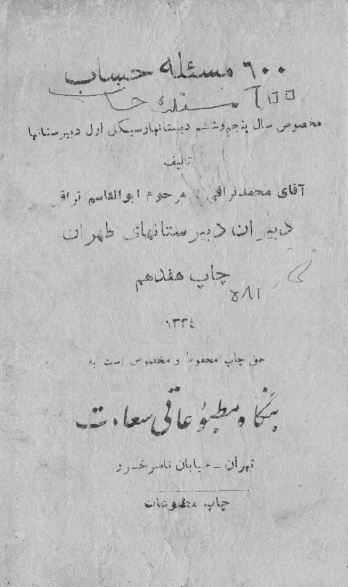 ۶۰۰ مسئله حساب
۶۰۰ مسئله حساب
مخصوص سال پنجم و ششم دبستانها و سیکل اول دبیرستانها
تالیف
آقای محمد نراقی مرحوم ابوالقاسم نراقی
دبیران دبیرستانهای طهران
چاپ هفدهم
۵۸۱
۱۳۳٤
حق چاپ محفوظ و مخصوص است به
بنگاه مطبوعاتی سعادت
تهران - خیابان ناصرخسرو
چاپ مطبوعات